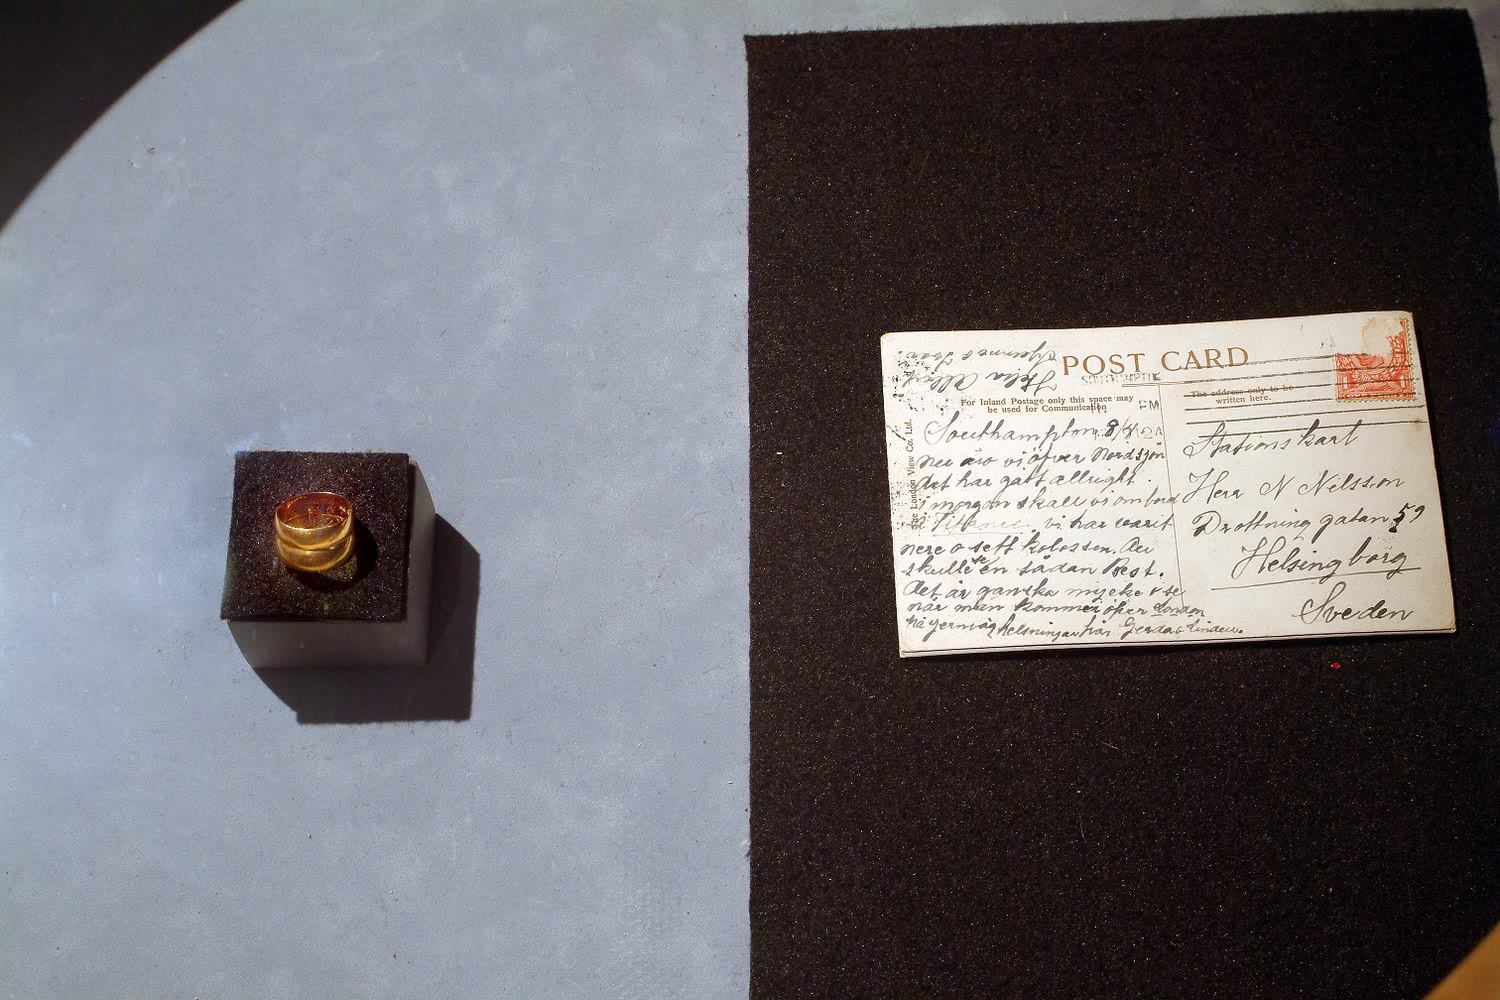 POST CARD
For Inland Postage only this space may
be used for Communication
The address only to be
written here.
The London View Co. Ltd.
SOUTHAMPTON
PM
Southampton 8/4
nu äro vi öfver Nordsjön
det har gått allright.
i morgon skall vi ombord
Titanic. vi har varit
nere o sett kolossen. du
skulle se en sådan Best.
det är ganska mycke o se
när man kommer öfver London
hälsningar från Gerda o Linden.
Stationskarl
Herr N Nilsson
Drottning gatan 59
Helsingborg
Sveden